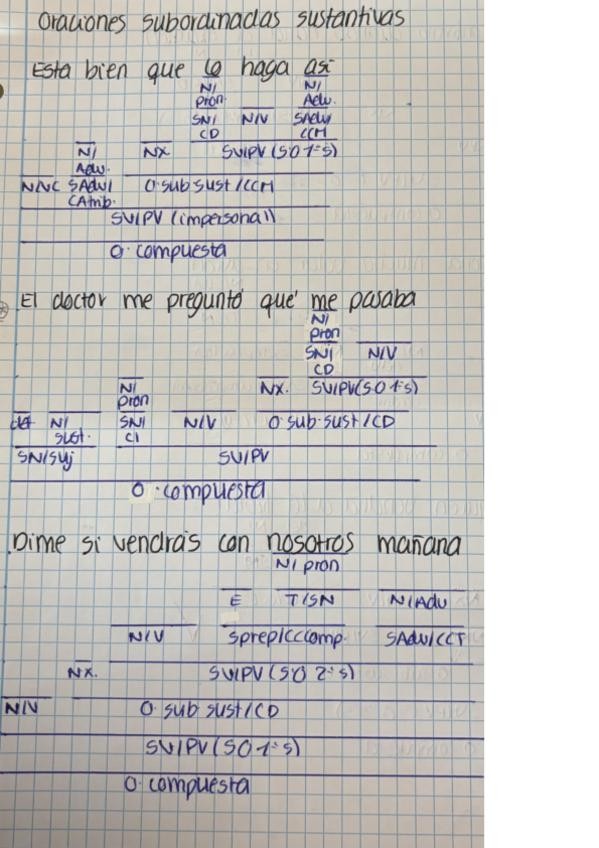 Oraciones subordinadas sustantivas
Esta bien que lo haga así
N/ N/
pron. Adv.
SN/ N/V SAdv/
CD CCM
N/ NX SV/PV (SO 1ªs)
Adv.
N/VC SAdv/ O. sub sust/CCM
CAtrib.
SV/PV (impersonal)
O. compuesta
El doctor me preguntó qué me pasaba
N/
pron
SN/ N/V
CD
N/ NX. SV/PV(SO 1ªs)
pron
det N/ SN/ N/V O. sub. sust/CD
sust. CI
SN/Suj SV/PV
O. compuesta
Dime si vendrás con nosotros mañana
N/ pron
E T/SN N/Adv
N/V Sprep/CCcomp. SAdv/CCT
NX. SV/PV (SO 2ªs)
N/V O. sub sust/CD
SV/PV (SO 1ªs)
O. compuesta